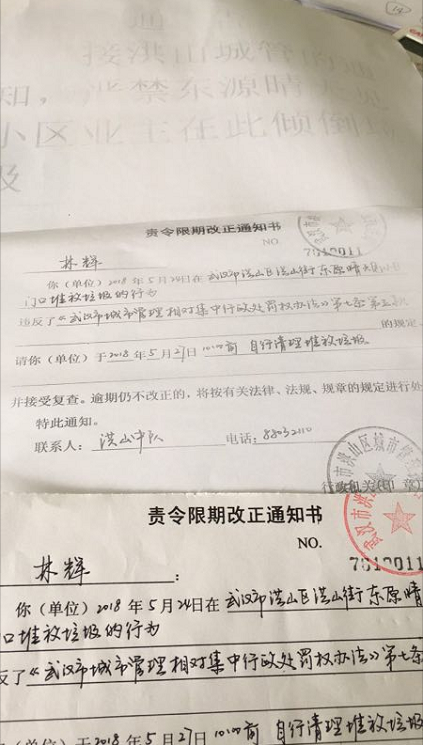 通
接洪山城管的通
知，严禁东源晴天见
小区业主在此倾倒垃
圾
责令限期改正通知书
NO 7012011
林辉
你（单位）2018年5月24日在武汉市洪山区洪山街东原晴天见小区
门口堆放垃圾的行为
违反了《武汉市城市管理相对集中行政处罚权办法》第七条第五款
的规定。
请你（单位）于2018年5月27日10:00前自行清理堆放垃圾。
并接受复查。逾期仍不改正的，将按有关法律、法规、规章的规定进行处
特此通知。
联系人：洪山中队 电话：88032110
行政机关（印 章）
责令限期改正通知书
NO. 7012011
林辉：
你（单位）2018年5月24日在武汉市洪山区洪山街东原晴
口堆放垃圾的行为
反了《武汉市城市管理相对集中行政处罚权办法》第七条
（单位）于2018年5月27日10:00前自行清理堆放垃圾